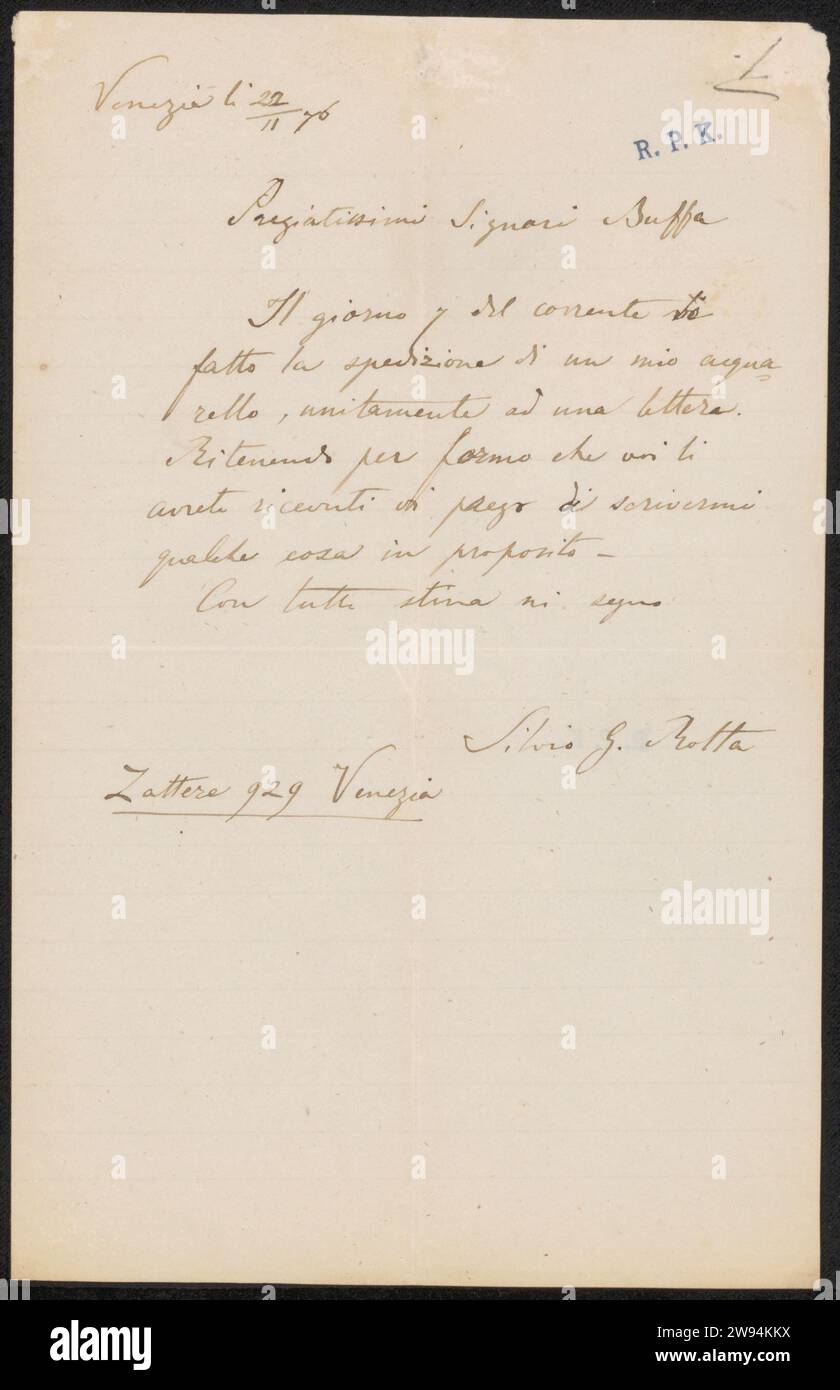 1
Venezia li 22/11 76
R. P. K.
Pregiatissimi Signori Buffa
Il giorno 7 del corrente
fatto la spedizione di un mio acqua
rello, unitamente ad una lettera.
Ritenendo per fermo che voi li
avrete ricevuti vi prego di scrivermi
qualche cosa in proposito —
Con tutta stima mi segno
Silvio G. Rotta
Zattere 929 Venezia
alamy
Image ID: 2W94KKX
www.alamy.com